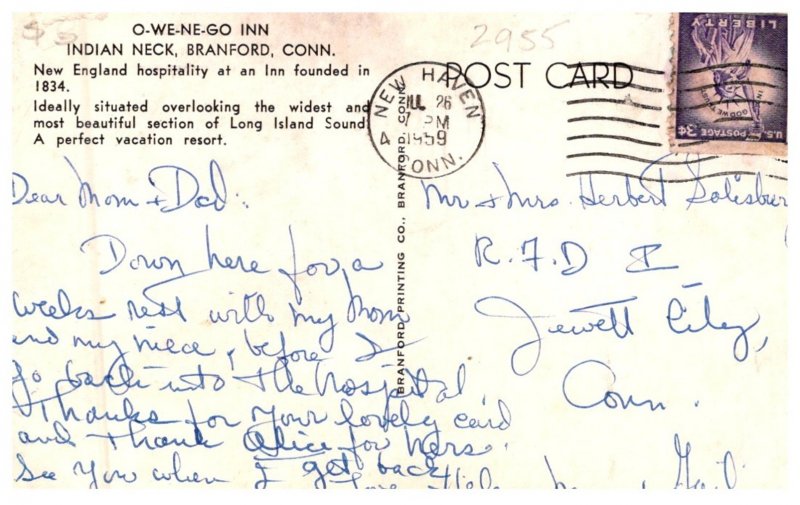 O-WE-NE-GO INN
INDIAN NECK, BRANFORD, CONN.
New England hospitality at an Inn founded in
1834.
Ideally situated overlooking the widest and
most beautiful section of Long Island Sound.
A perfect vacation resort.
2955
POST CARD
NEW HAVEN
JUL 26
7 PM
1959
4 CONN.
LIBERTY
IN GOD WE TRUST
3¢ U.S. POSTAGE
BRANFORD PRINTING CO., BRANFORD, CONN.
Dear Mom + Dad:
Down here for a
weeks rest with my Mom
and my niece, before I
go back into the hospital.
Thanks for your lovely card
and thank Alice for hers.
See you when I get back
Love Helen
Gail
Mr + Mrs. Herbert Salisbury
R.F.D I
Jewett City,
Conn.